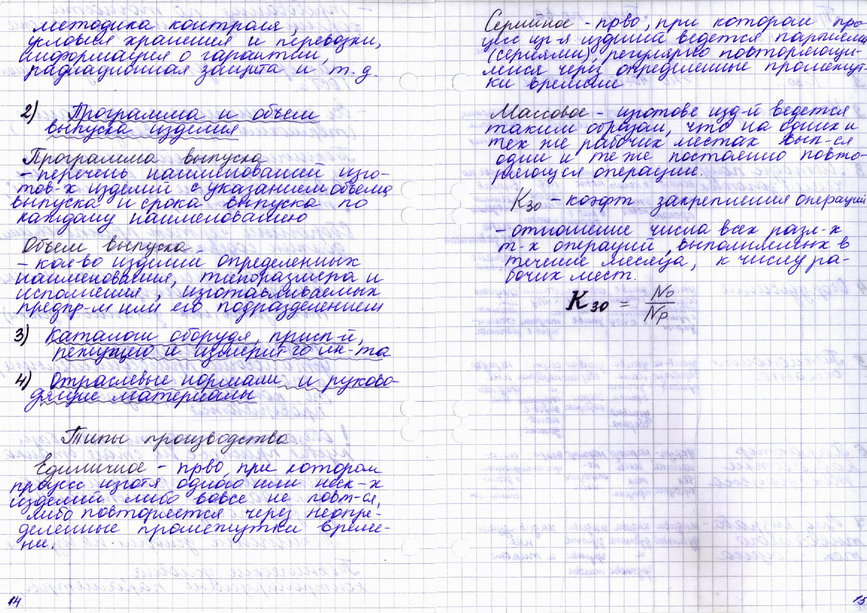 методика контроля,
условия хранения и перевозки,
информация о гарантии,
радиационная защита и т.д.
2) Программа и объем
выпуска изделия
Программа выпуска
- перечень наименований изго-
тов-х изделий с указанием объема
выпуска и срока выпуска по
каждому наименованию
Объем выпуска -
- кол-во изделий определенных
наименования, типоразмера и
исполнения, изготавливаемых
предпр-м или его подразделением
3) Каталоги оборудя, присп-й,
режущего и измерит-го ин-та
4) Отраслевые нормали и руково-
дящие материалы
Типы производства
Единичное - прво, при котором
процесс изготя одного или неск-х
изделий либо вовсе не повт-ся,
либо повторяется через неопре-
деленные промежутки време-
ни.
14
Серийное - прво, при котором про-
цесс изг-я изделия ведется партиями
(сериями), регулярно повторяющи-
мися через определенные промежут-
ки времени
Массовое - изготове изд-й ведется
таким образом, что на одних и
тех же рабочих местах вып-ся
одни и те же постоянно повто-
ряющиеся операции.
Kзо - коэфт закрепления операций
- отношение числа всех разл-х
т-х операций, выполнимых в
течение месяца, к числу ра-
бочих мест.
Kзо = No / Np
15